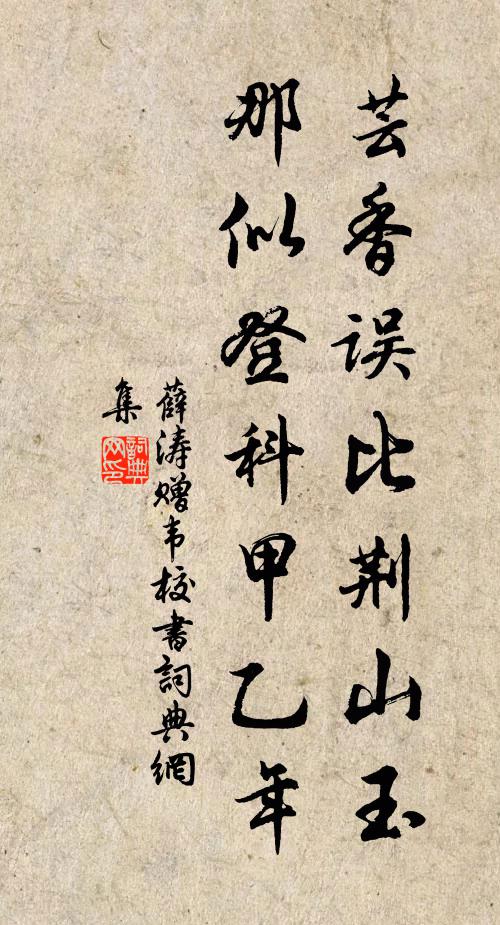 芸香误比荆山玉
那似登科甲乙年
薛涛赠韦校书詞典網
集
詞典網印